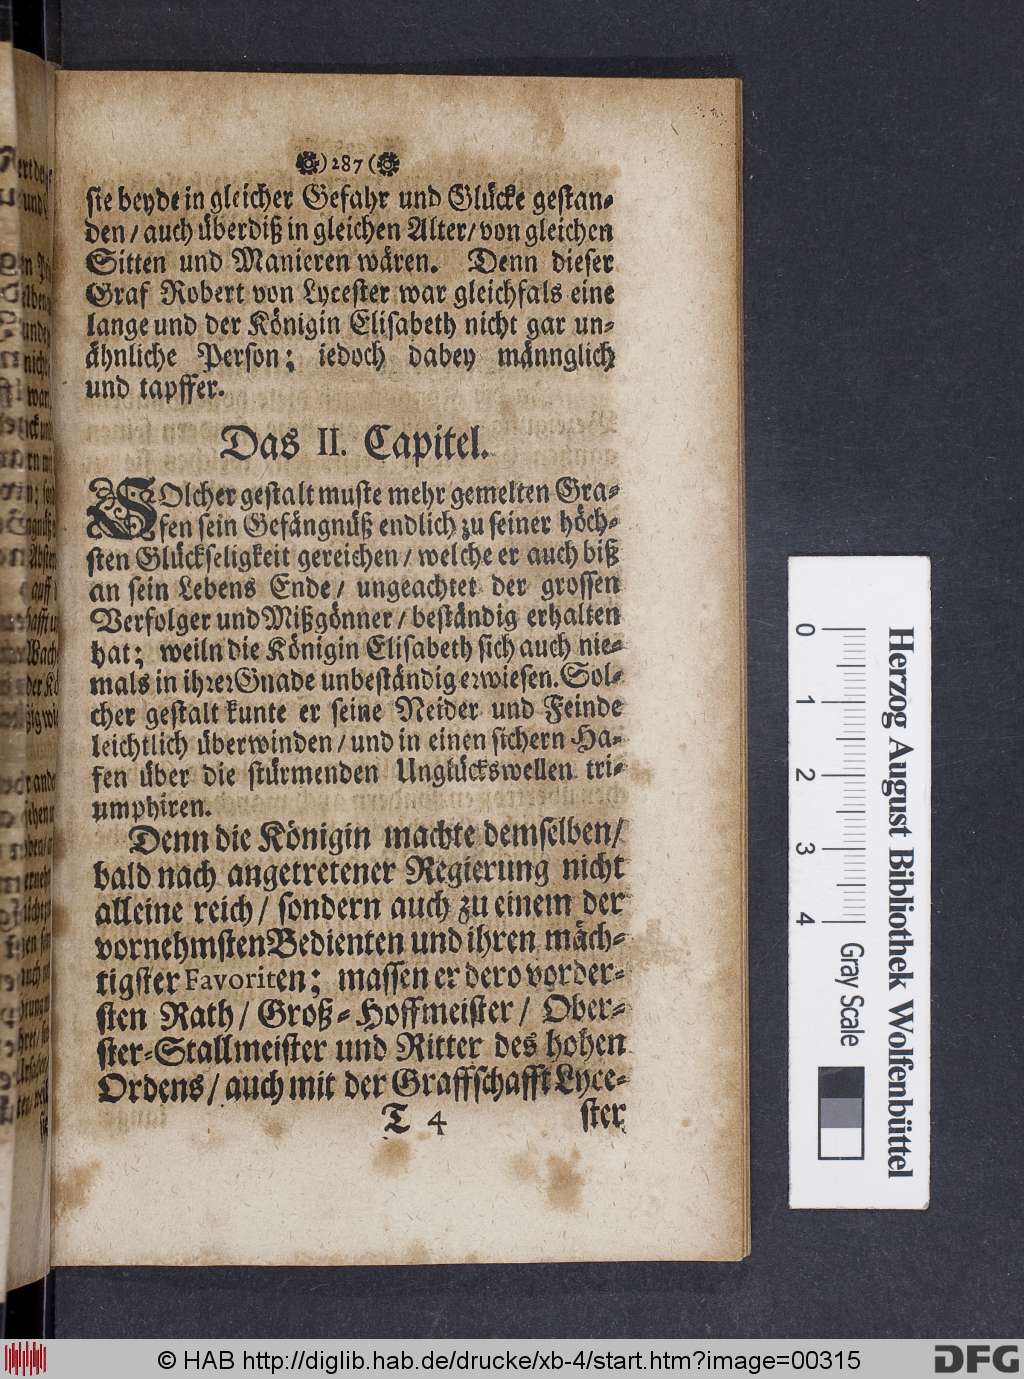 )287(
sie beyde in gleicher Gefahr und Glücke gestan-
den / auch überdiß in gleichen Alter / von gleichen
Sitten und Manieren wären. Denn dieser
Graf Robert von Lycester war gleichfals eine
lange und der Königin Elisabeth nicht gar un-
ähnliche Person; iedoch dabey männglich
und tapffer.
Das II. Capitel.
SOlcher gestalt muste mehr gemelten Gra-
fen sein Gefängnüß endlich zu seiner höch-
sten Glückseligkeit gereichen / welche er auch biß
an sein Lebens Ende / ungeachtet der grossen
Verfolger und Mißgönner / beständig erhalten
hat; weiln die Königin Elisabeth sich auch nie-
mals in ihrer Gnade unbeständig erwiesen. Sol-
cher gestalt kunte er seine Neider und Feinde
leichtlich überwinden / und in einen sichern Ha-
fen über die stürmenden Unglückswellen tri-
umphiren.
Denn die Königin machte demselben /
bald nach angetretener Regierung nicht
alleine reich / sondern auch zu einem der
vornehmsten Bedienten und ihren mäch-
tigster Favoriten; massen er dero vorder-
sten Rath / Groß-Hoffmeister / Ober-
ster-Stallmeister und Ritter des hohen
Ordens / auch mit der Graffschafft Lyce-
T 4 ster
0 1 2 3 4
Gray Scale
Herzog August Bibliothek Wolfenbüttel
© HAB http://diglib.hab.de/drucke/xb-4/start.htm?image=00315
DFG